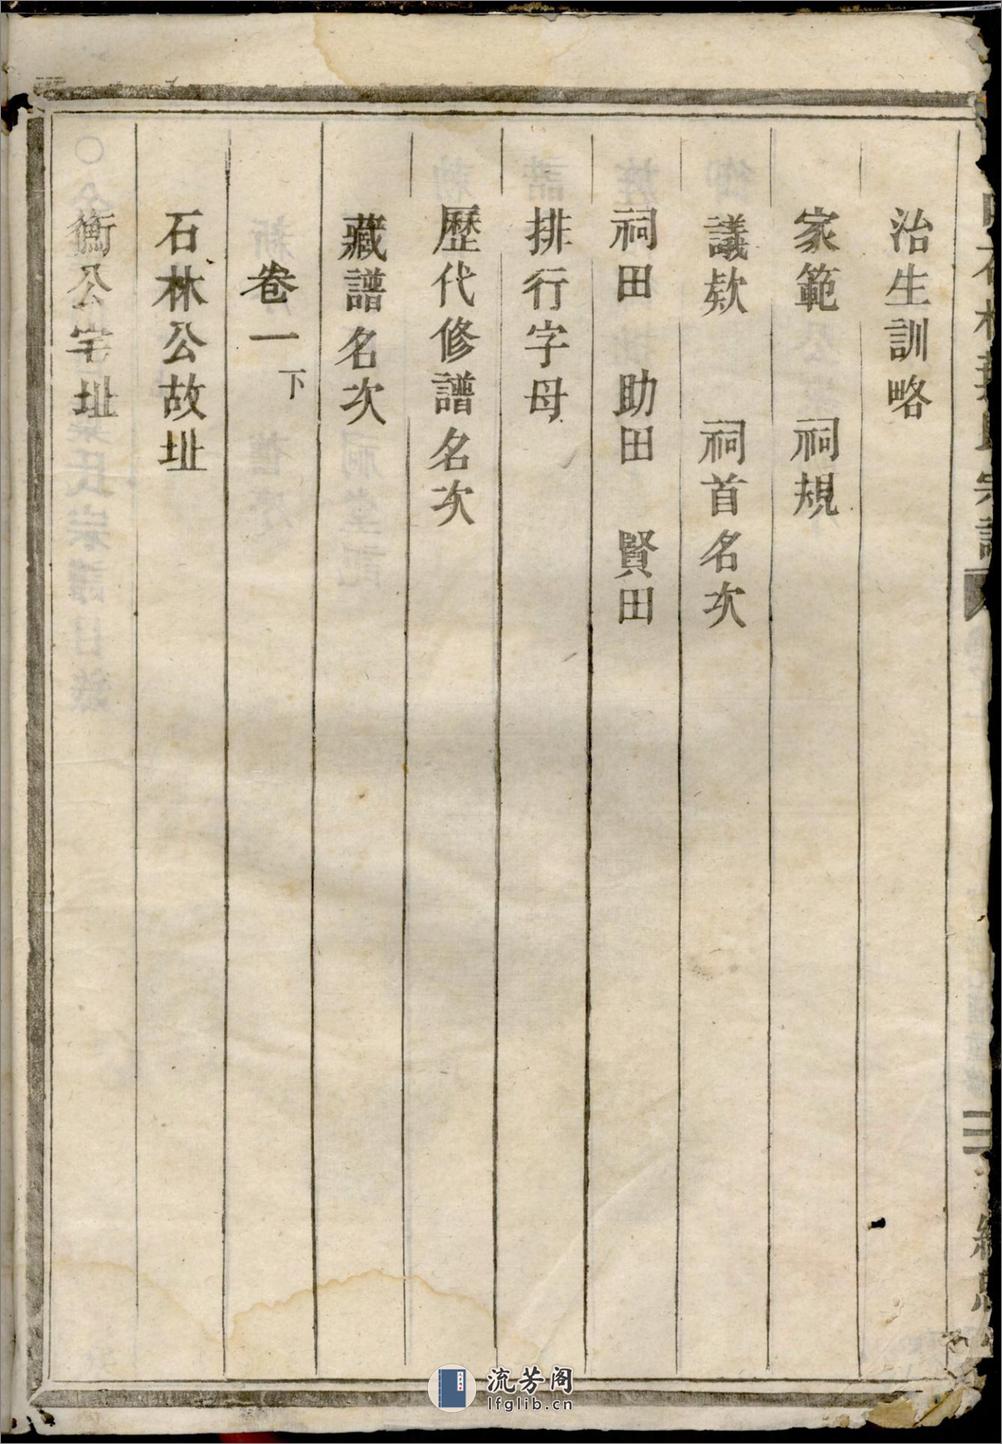 治生訓略
家範　祠規
議欵　祠首名次
祠田　助田　賢田
排行字母
歷代修譜名次
藏譜名次
卷一下
石林公故址
衡公宅址
流芳阁
lfglib.cn